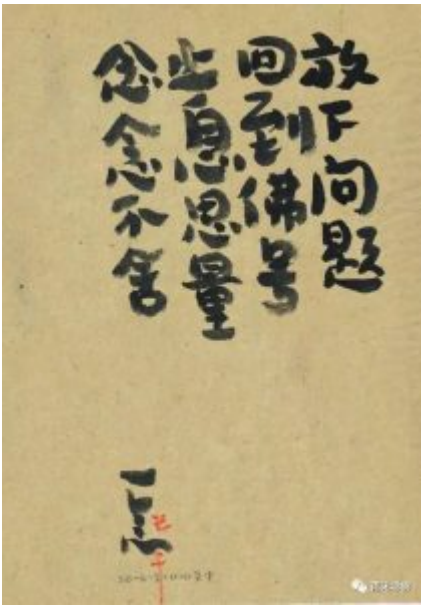 放下问题
回到佛号
止息思量
念念不舍